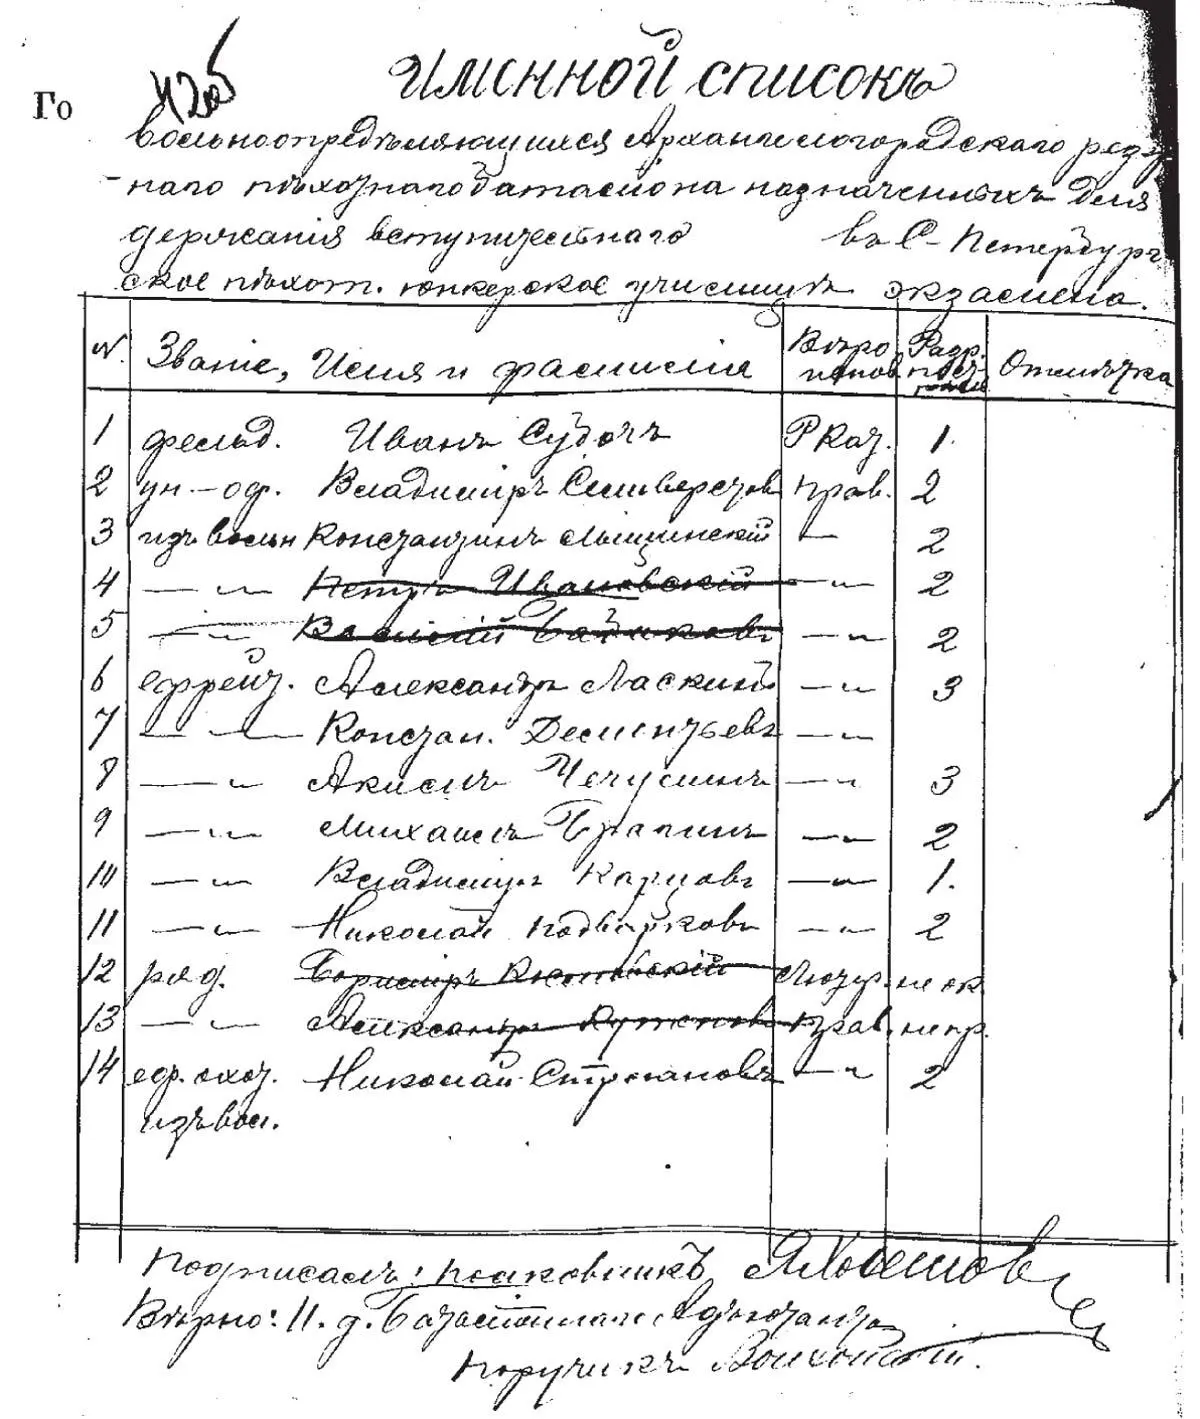 Го
Именной списокъ
вольноопредѣляющихся Архангелогородскаго резер-
-наго пѣхотнаго баталіона назначенныхъ для
держанія вступительнаго въ С-Петербург
ское пѣхот. юнкерское училище экзамена.
№. Званіе, Имя и фамилія Вѣро исповѣд Разр. Отмѣтка
1 фельд. Иванъ Судочъ Р Кат. 1.
2 ун.-оф. Владиміръ Сильверстов прав. 2
3 изъ вольн Константинъ Лыщинскій — 2
4 — „ — Петръ Ивановскій — „ 2
5 — „ Василій — „ 2
6 ефрейт. Александръ Ласкинъ — „ 3
7 — — Констан. Дементьевъ — „
8 — „ Акимъ Чечулинъ — „ 3
9 — „ — Михаилъ Брагинъ — „ 2
10 — „ — Владиміръ Карцовъ — „ 1.
11 — „ — Николай Подварковъ — „ 2
12 ряд. Лютер. не ок.
13 — „ — Александръ прав. не пр.
14 ефр. охот. Николай Степановъ — „ 2
изъ вол.
Подписалъ: полковникъ
Вѣрно: И. д. Баталіоннаго Адъютанта
поручикъ